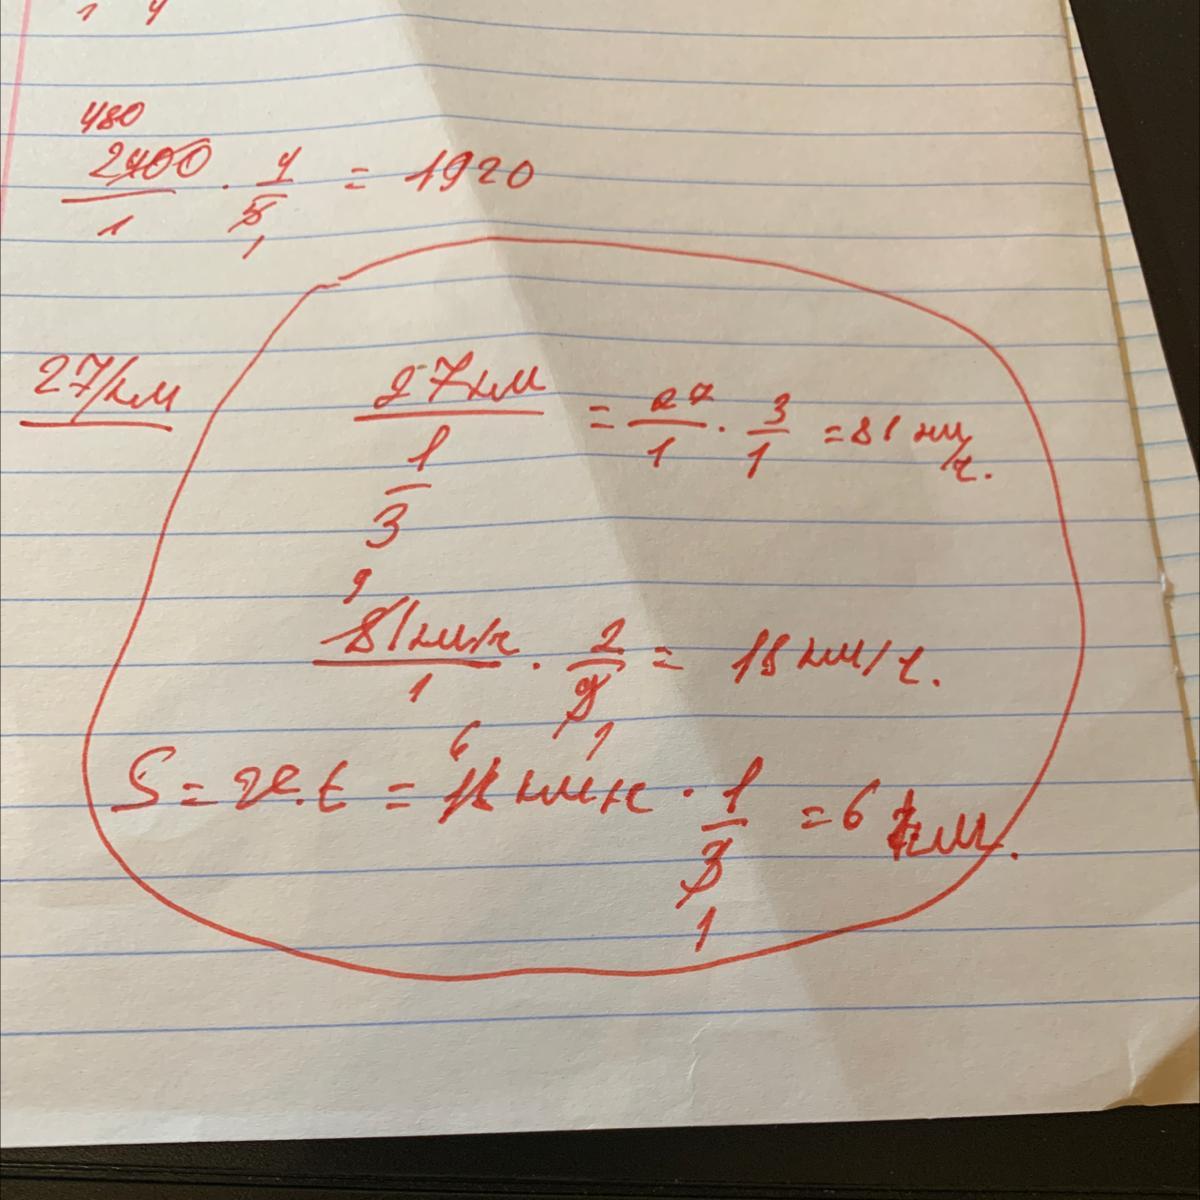 1 4
480
2400/1 · 4/5 = 1920
1
27/км
27км / 1/3 = 27/1 · 3/1 = 81 км/ч.
9
81км/ч/1 · 2/9 = 18 км/ч.
6 1
S = v.t = 18 км/ч · 1/3 = 6 км.
1